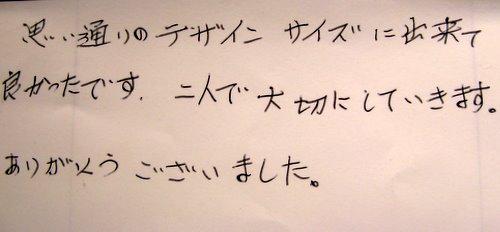 思い通りのデザイン サイズに出来て
良かったです. 二人で大切にしていきます。
ありがとうございました。